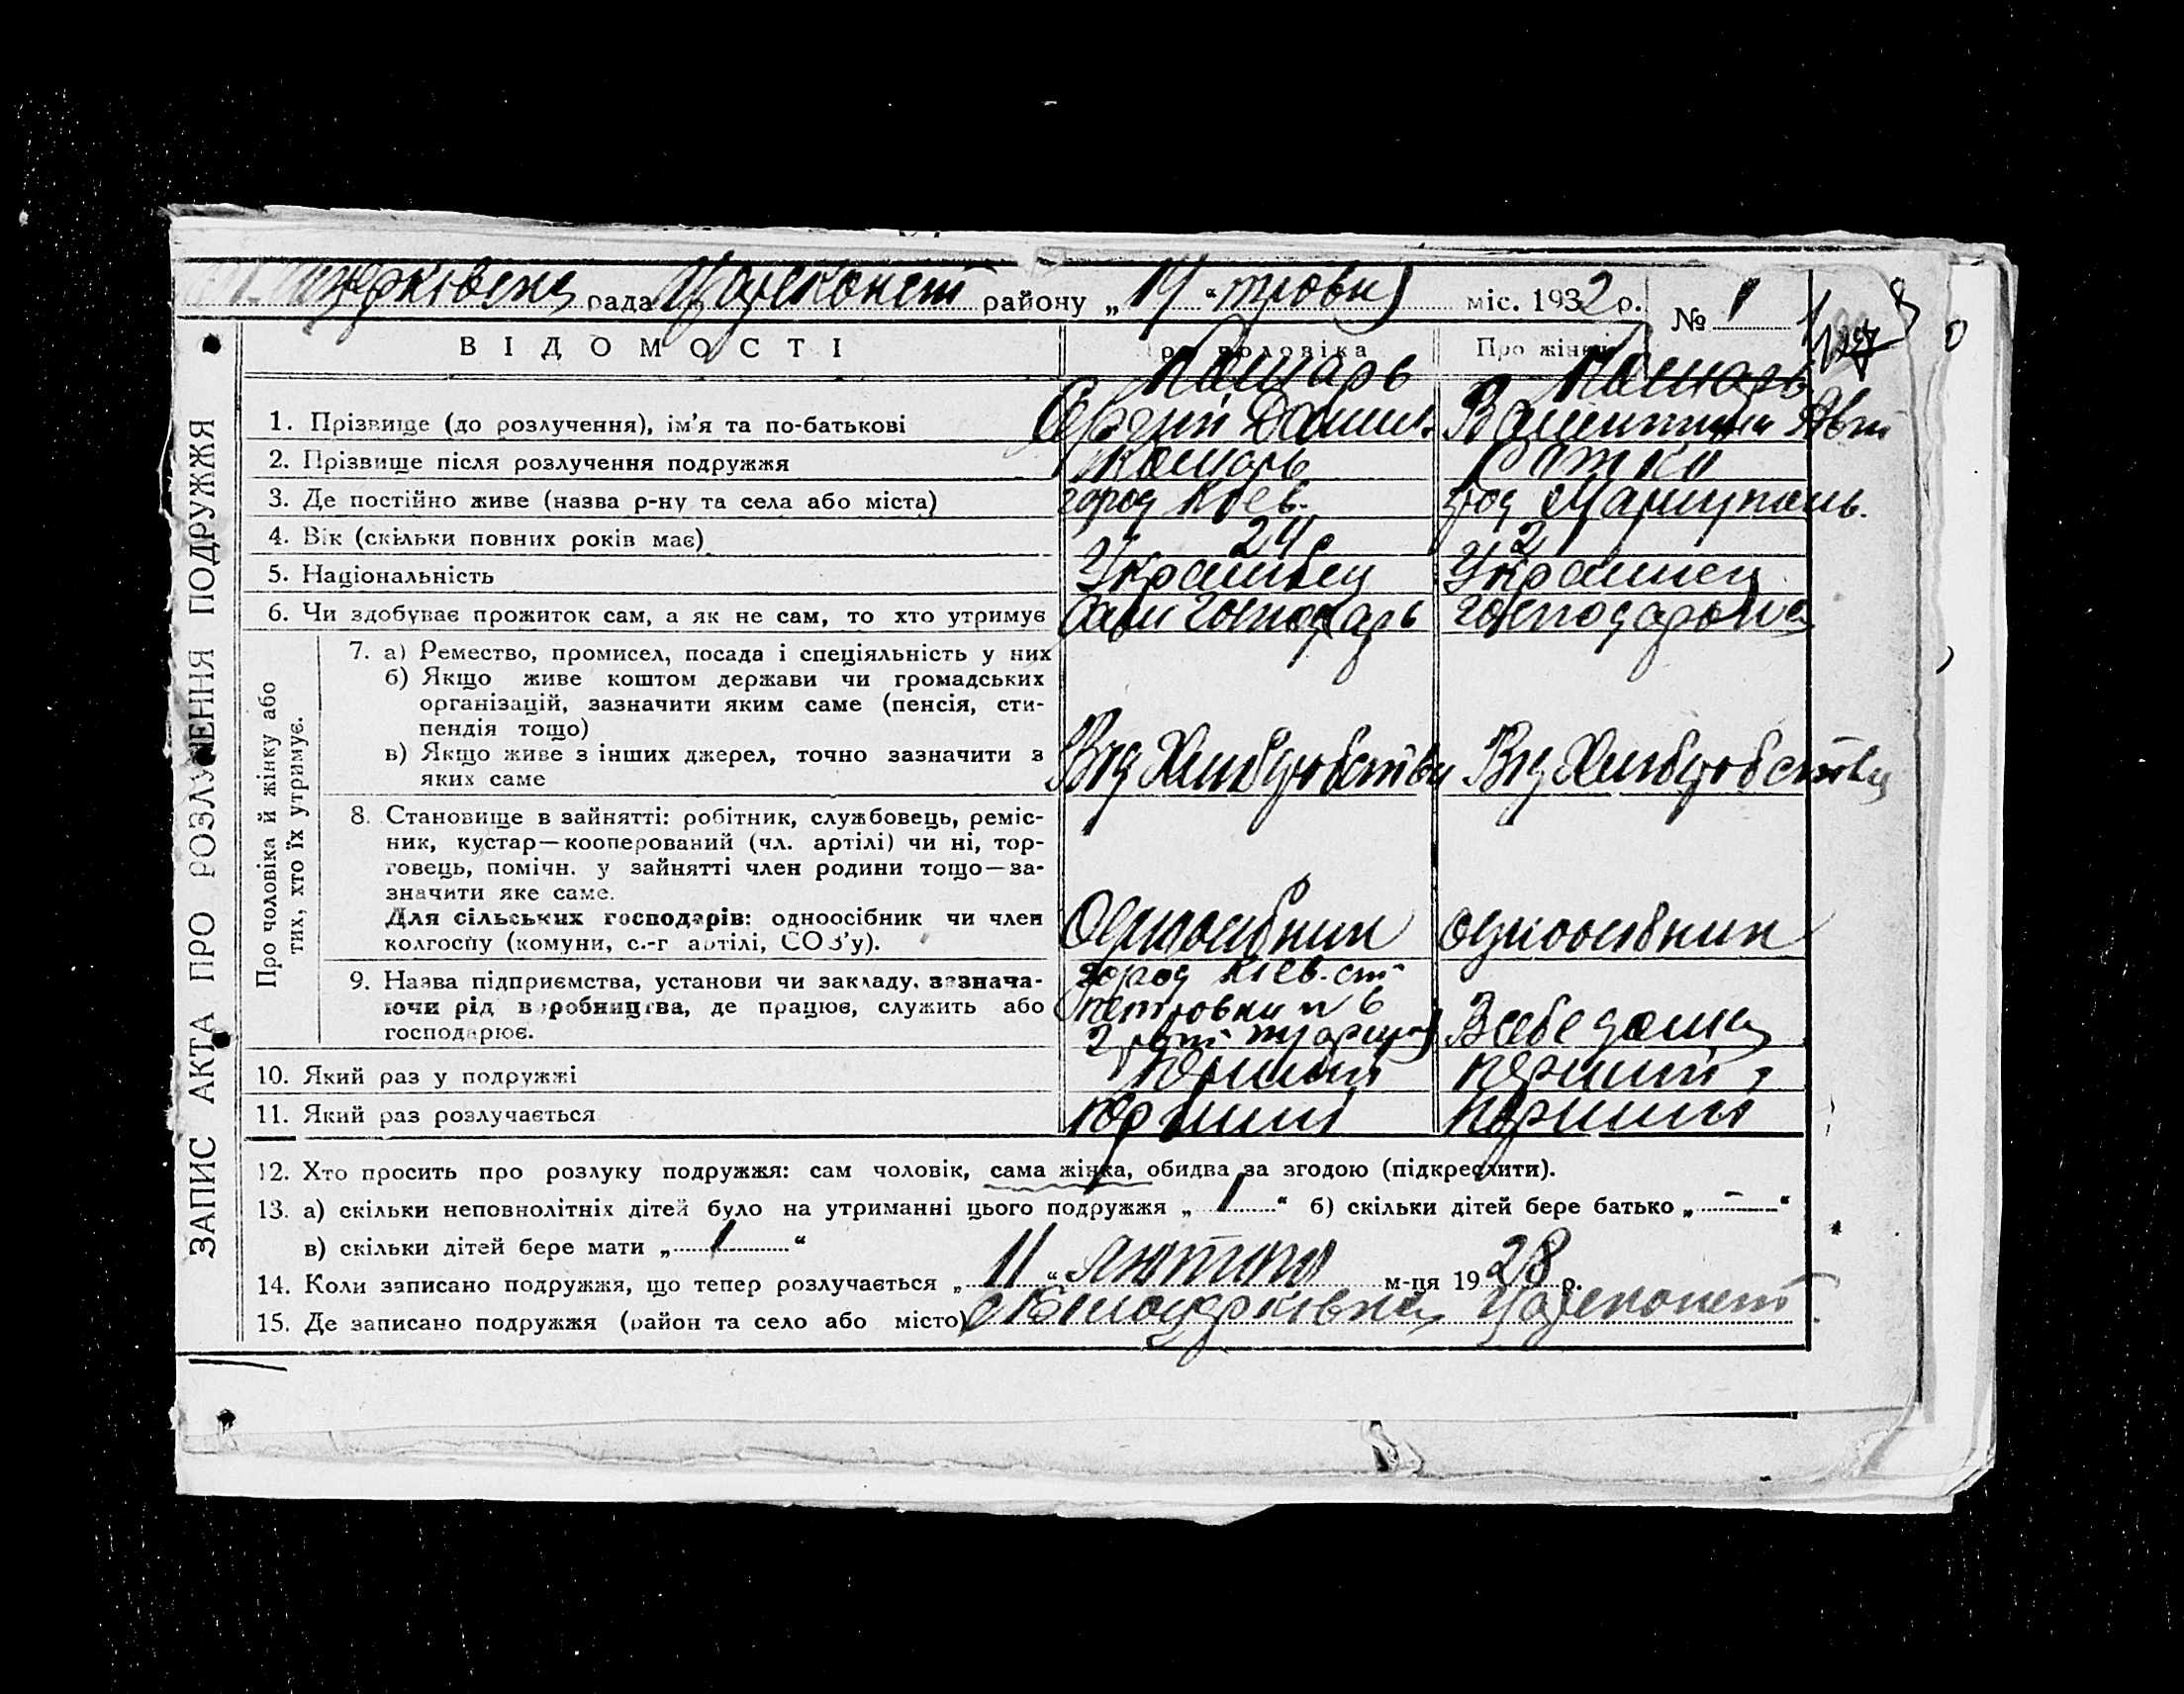 рада Цареконст району „ 14 “ травня міс. 1932 р. № 1
ВІДОМОСТІ
Про чоловіка
Про жінку
ЗАПИС АКТА ПРО РОЗЛУЧЕННЯ ПОДРУЖЖЯ
Кошарь Кошарь
1. Прізвище (до розлучення), ім'я та по-батькові Сергій Данил. Валентина
2. Прізвище після розлучення подружжя Кошарь Ратка
3. Де постійно живе (назва р-ну та села або міста) город Киев. Мариуполь.
4. Вік (скільки повних років має) 24 2
5. Національність Украинец Украинец
6. Чи здобуває прожиток сам, а як не сам, то хто утримує Сам господарь господарька
Про чоловіка й жінку або
тих, хто їх утримує.
7. а) Ремество, промисел, посада і спеціяльність у них
б) Якщо живе коштом держави чи громадських
організацій, зазначити яким саме (пенсія, сти-
пендія тощо)
в) Якщо живе з інших джерел, точно зазначити з
яких саме
Від Хлибдобства Від Хлибдобства
8. Становище в зайнятті: робітник, службовець, реміс-
ник, кустар—кооперований (чл. артілі) чи ні, тор-
говець, помічн. у зайнятті член родини тощо—за-
значити яке саме.
Для сільських господарів: одноосібник чи член
колгоспу (комуни, с.-г артілі, СОЗ'у).
Одноосібник одноосібник
9. Назва підприємства, установи чи закладу, зазнача-
ючи рід виробництва, де працює, служить або
господарює.
город Киев. ст
Петровки № 6
В себе дома
10. Який раз у подружжі перший перший
11. Який раз розлучається перший перший
12. Хто просить про розлуку подружжя: сам чоловік, сама жінка, обидва за згодою (підкреслити).
13. а) скільки неповнолітніх дітей було на утриманні цього подружжя „ 1 “ б) скільки дітей бере батько „ — “
в) скільки дітей бере мати „ 1 “
14. Коли записано подружжя, що тепер розлучається „ 11 “ Лютого м-ця 1928 р.
15. Де записано подружжя (район та село або місто) Цареконст